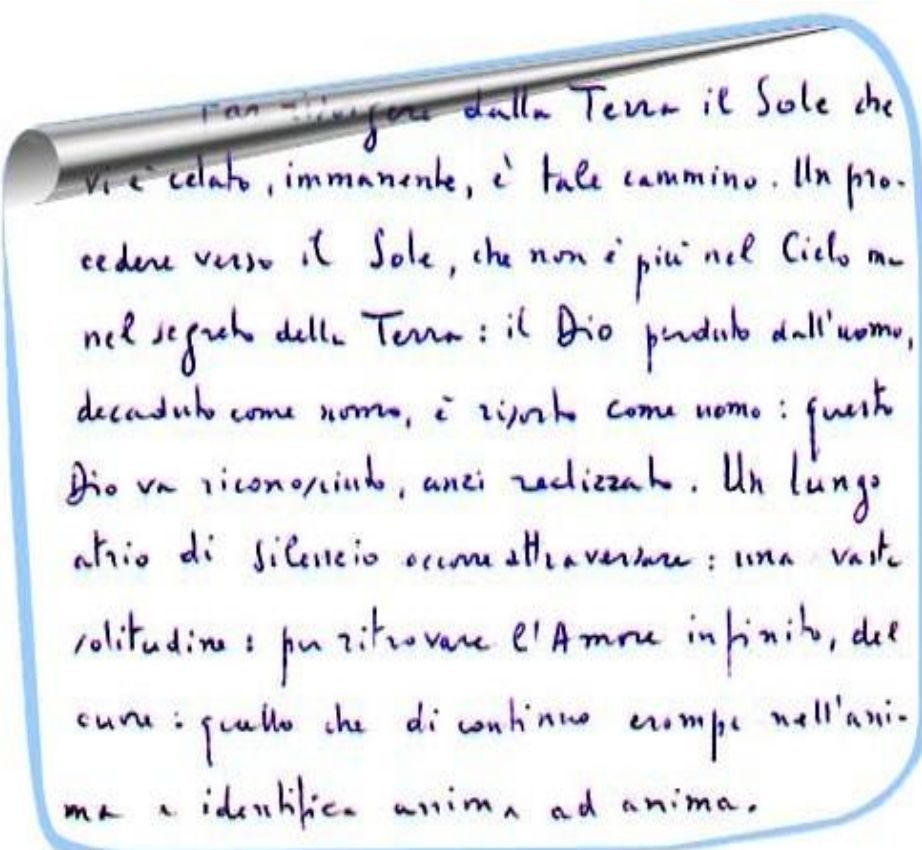 Far dalla Terra il Sole che
vi è celato, immanente, è tale cammino. Un pro-
cedere verso il Sole, che non è più nel Cielo ma
nel segreto della Terra: il Dio perduto dall'uomo,
decaduto come uomo, è risorto come uomo: questo
Dio va riconosciuto, anzi realizzato. Un lungo
atrio di silenzio occorre attraversare: una vasta
solitudine: per ritrovare l'Amore infinito, del
cuore: quello che di continuo erompe nell'ani-
ma e identifica anima ad anima.